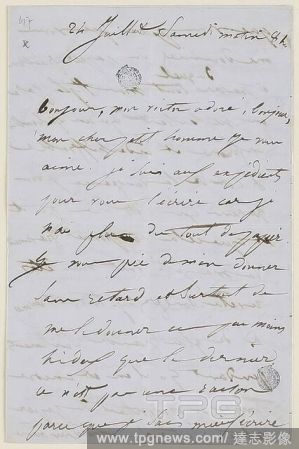 24 Juillet Samedi matin 8h
Bonjour, mon victor adoré, bonjour,
mon cher petit homme je vous
aime. je suis aux expédients
pour vous l'écrire car je
n'ai plus du tout de papier
je vous prie de m'en donner
sans retard et surtout de
me le donner un peu moins
hideux que le dernier,
ce n'est pas une raison
parce que je sais mal écrire
TPG
www.tpgnews.com / 達志影像